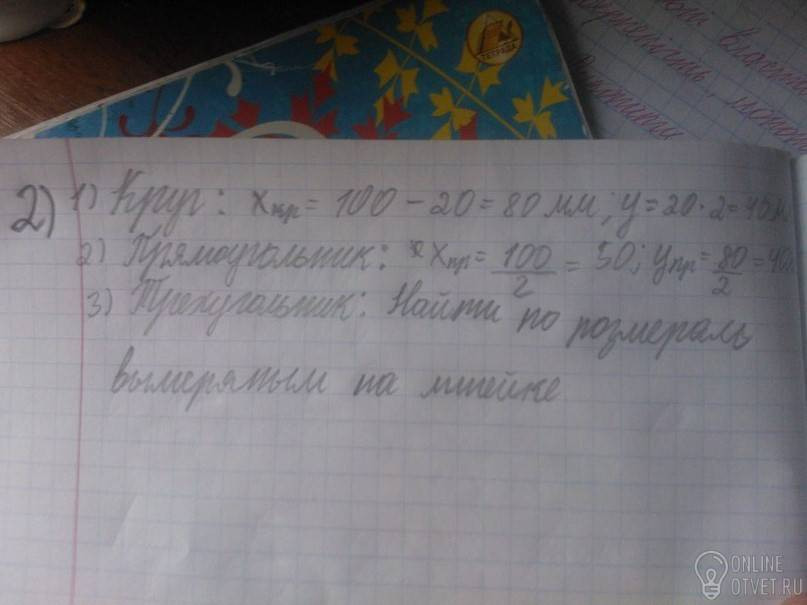 ТЕТРАДЬ
2)
1) Круг: xкр = 100 - 20 = 80 мм; y = 20 · 2 = 40
2) Прямоугольник: xпр = 100/2 = 50; yпр = 80/2 = 40
3) Треугольник: Найти по розмераль
вымеряным на линейке
ONLINE
OTVET.RU